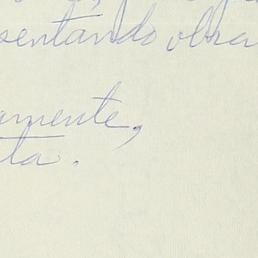 sentando obra
amente,
ta.